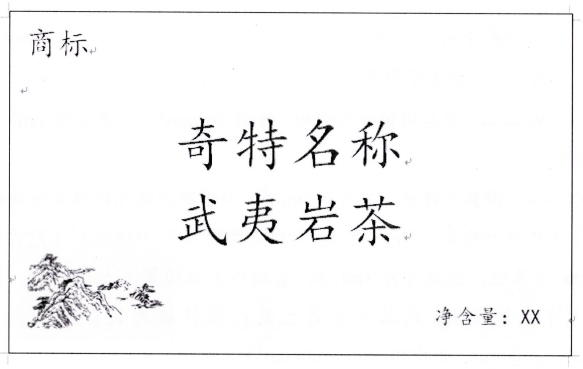 商标
奇特名称
武夷岩茶
净含量：XX